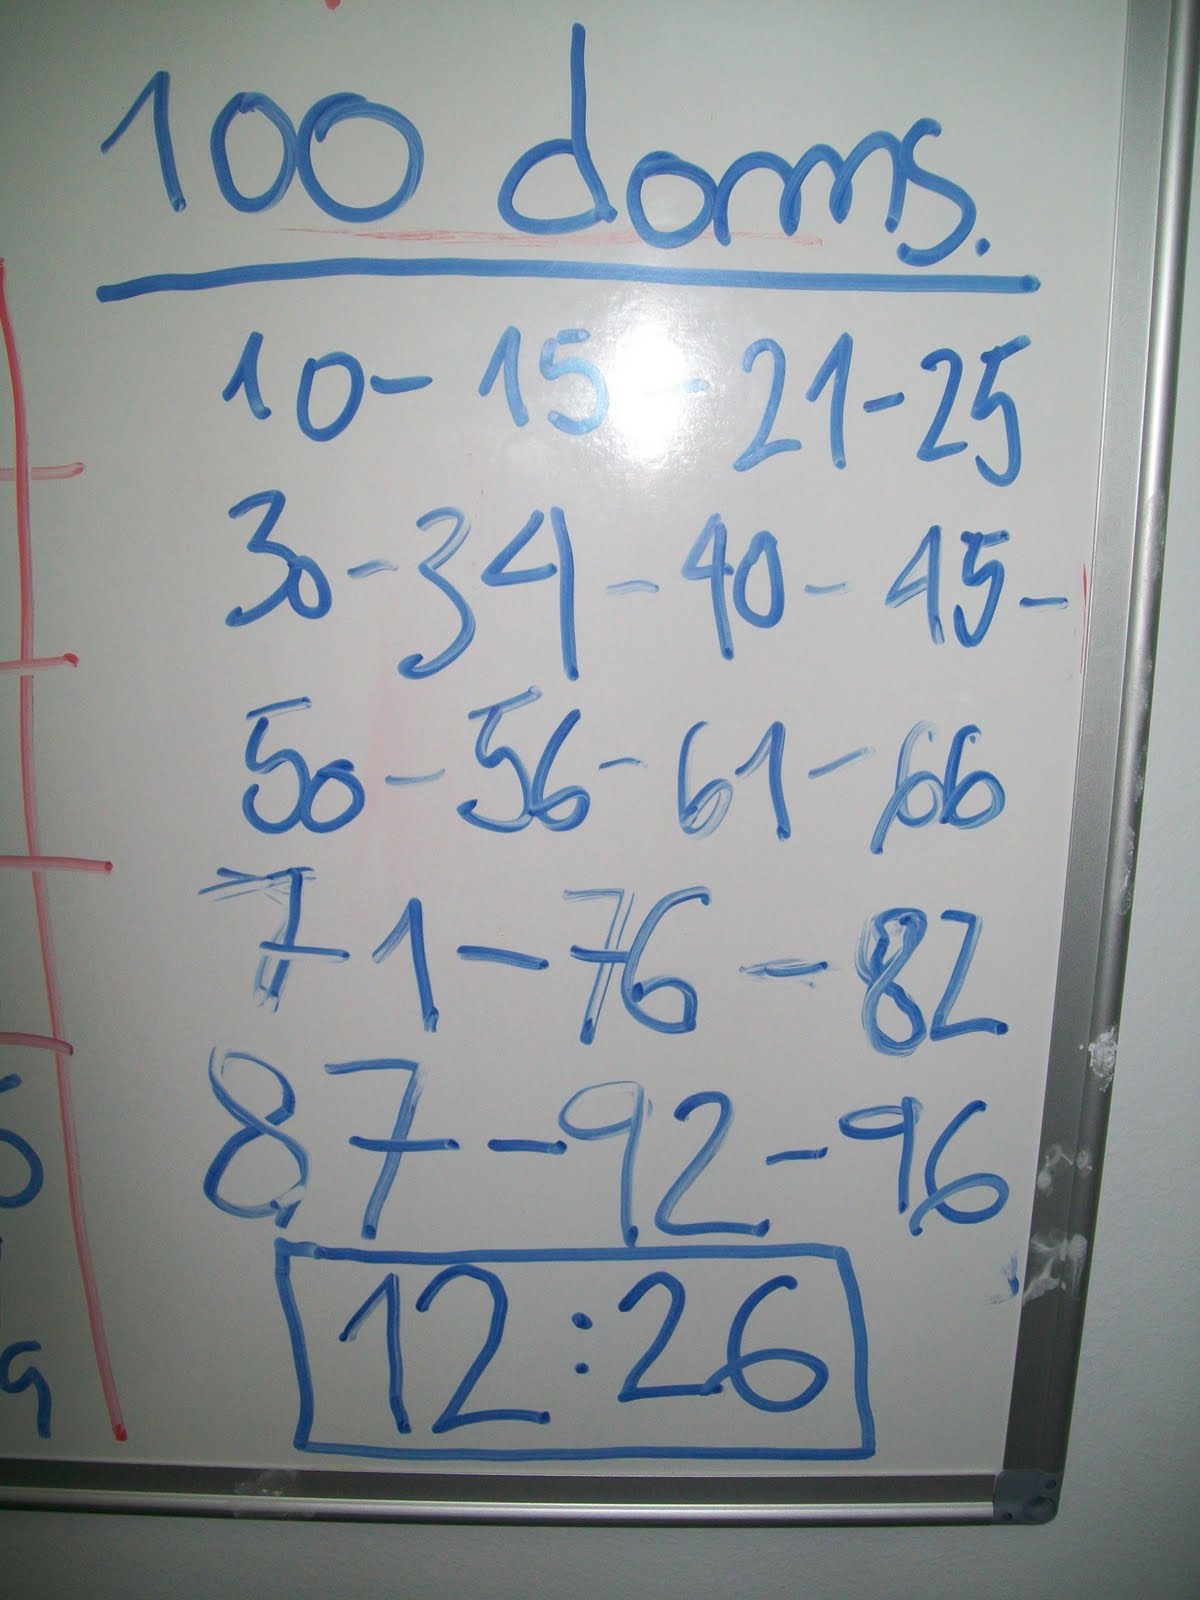 100 doms.
10 - 15 - 21 - 25
30 - 34 - 40 - 45 -
50 - 56 - 61 - 66
71 - 76 - 82
87 - 92 - 96
12:26